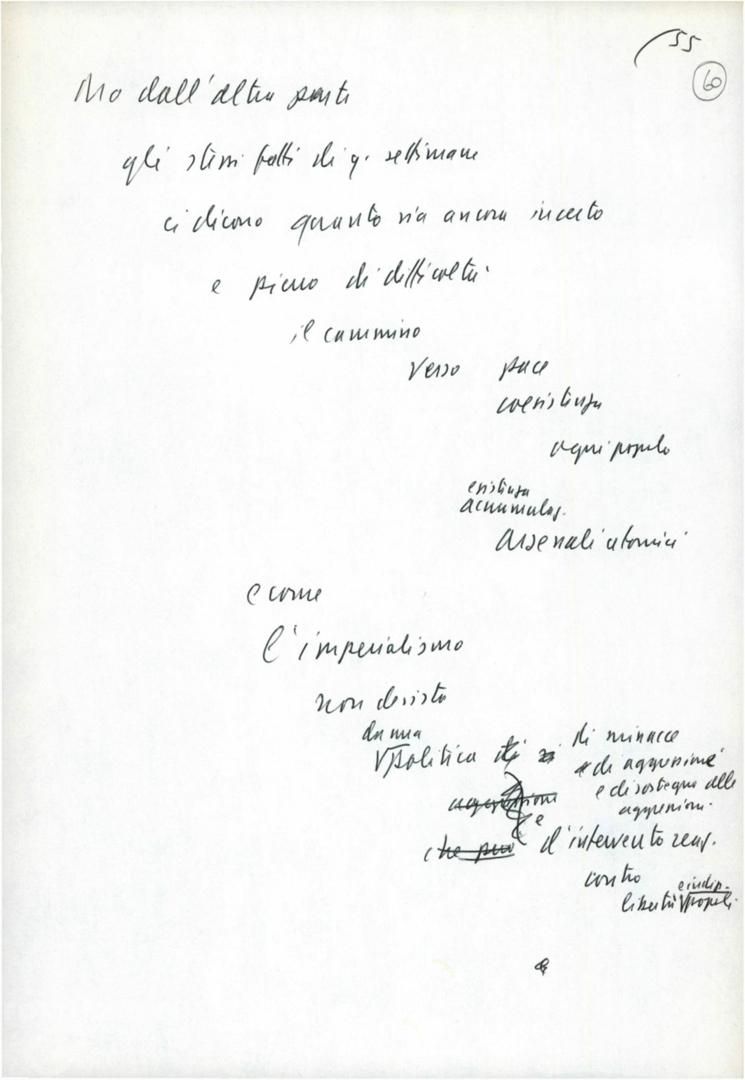 55
60
Ma dall'altra parte
gli stessi fatti di q. settimane
ci dicono quanto sia ancora incerto
e pieno di difficoltà
il cammino
verso pace
coesistenza
ogni popolo
esistenza
accumulaz.
Arsenali atomici
e come
l'imperialismo
non desista
da una
politica di di minacce
di aggressione
e di sostegno alle
aggressioni.
aggressione
e
che può d'intervento reaz.
contro
e indip.
libertà popoli.